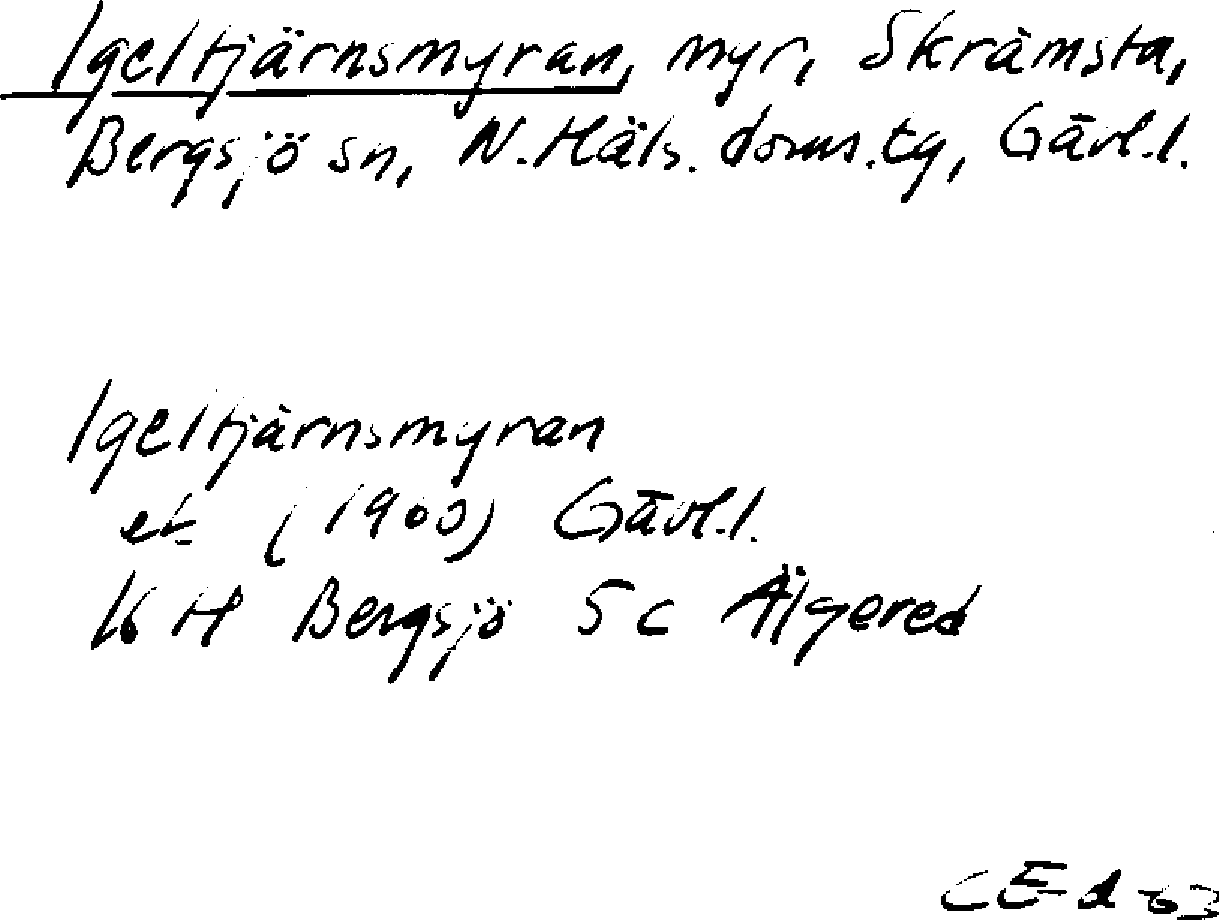 Igeltjärnsmyran, myr, Skrämsta,
Bergsjö sn, N. Häls. doms.tg, Gävl.l.
Igeltjärnsmyran
ek (1900) Gävl.l.
KH Bergsjö 5c Älgered
CEd -63